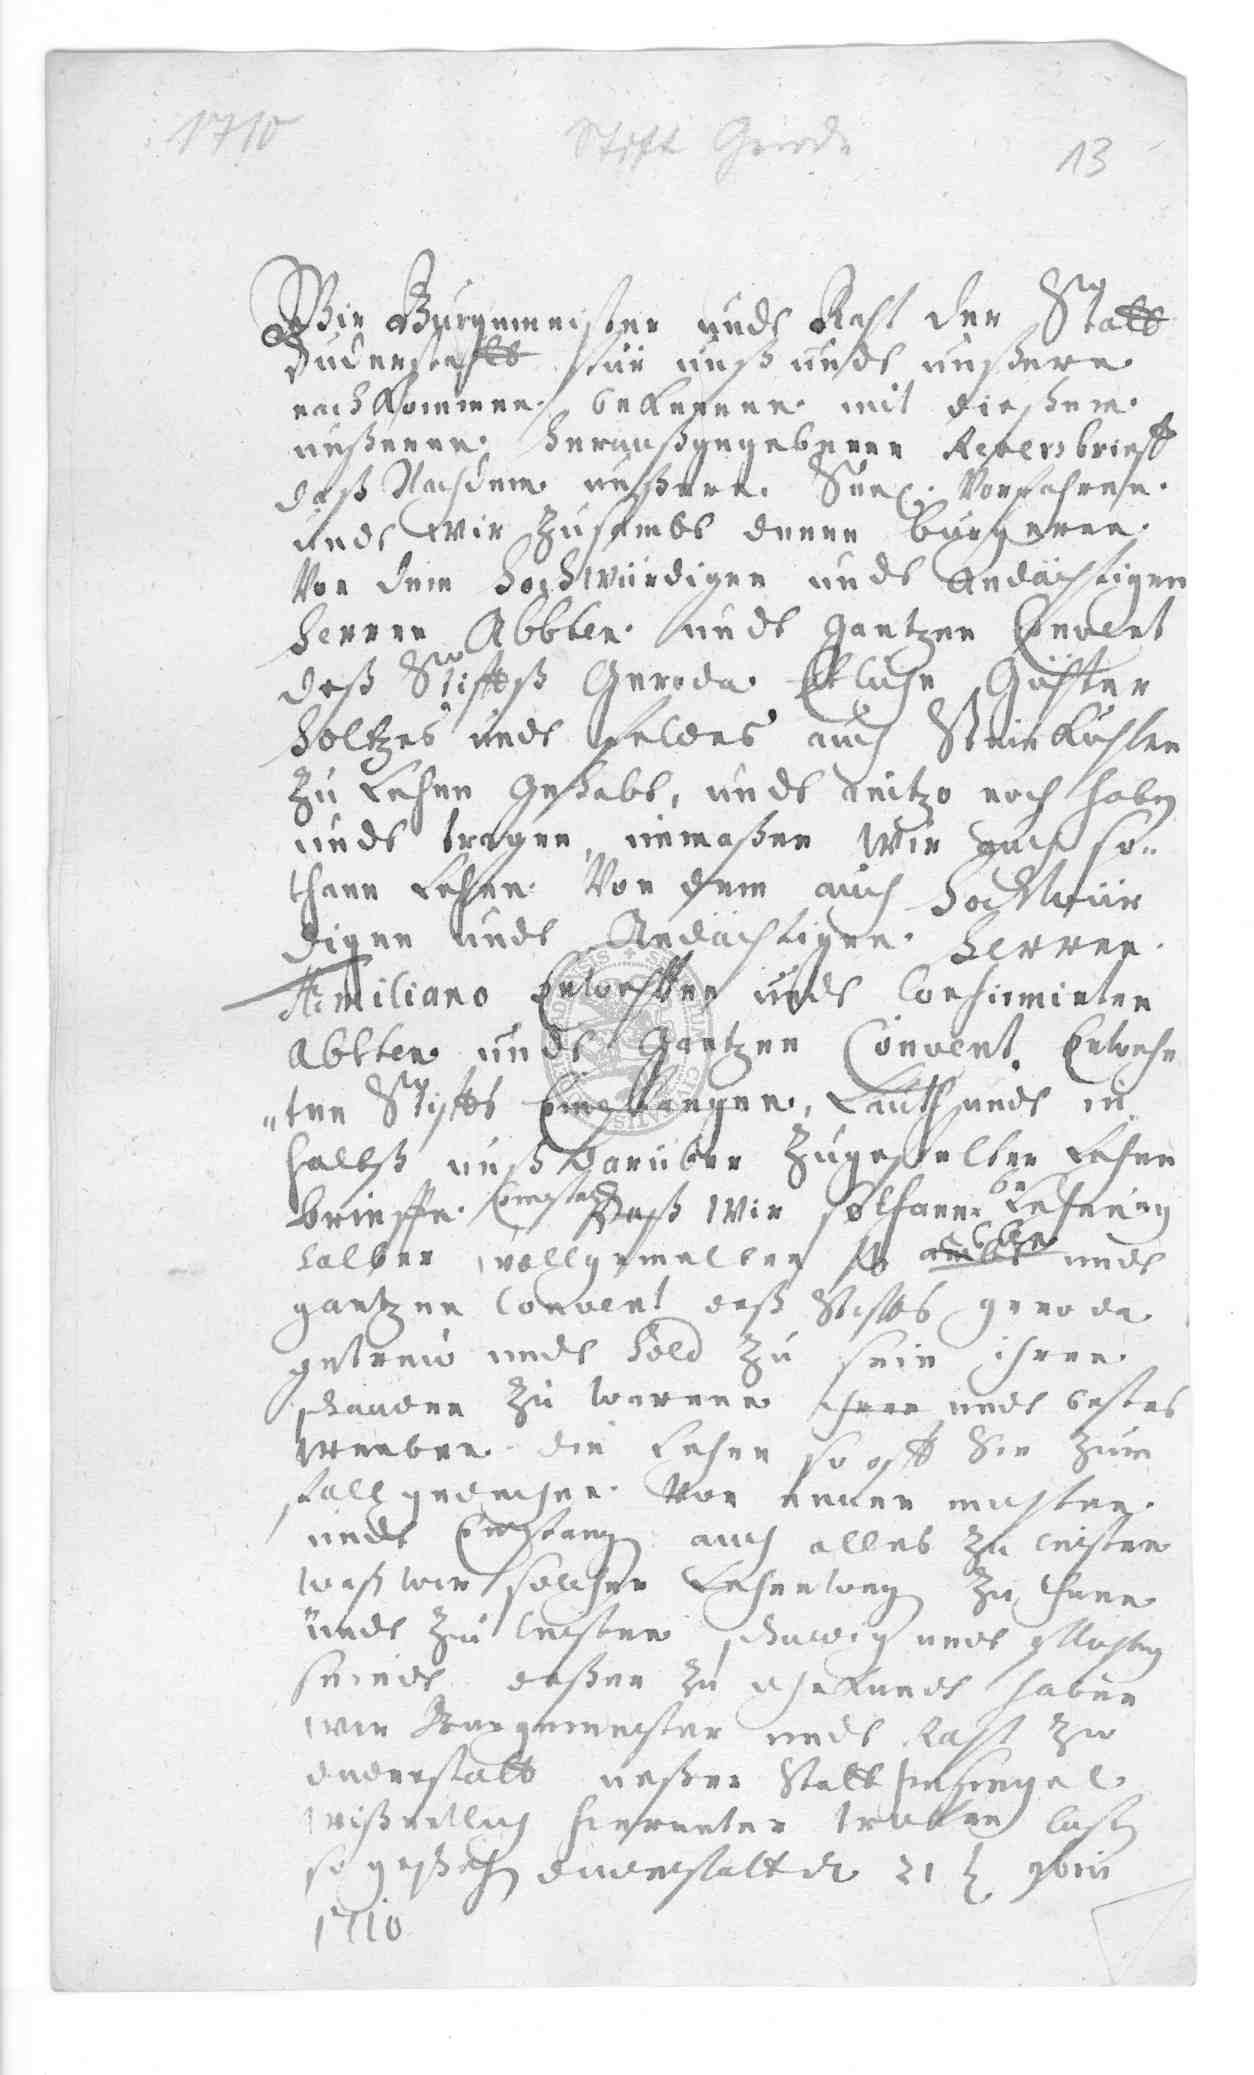 1710 Stift Gerode 13
Wir Burgemeister undt Raht der Statt
Duderstatt für unß undt unßere
nachkommen bekennen mit dießem
unßeren heraußgegebenen Reversbrieff
daß Nachdem unßere Vorfahren
undt wir zusambt denen burgeren
Von dem hochwürdigen undt Andächtigen
herren Abbten undt gantzen Convent
deß Stiffteß Geroda Etliche Güther
holtzes undt feldes auch Steinkuhlen
zu Lehen gehabt, undt anitzo noch haben
undt tragen, inmaßen Wir auch so„
thane Lehen Von dem auch hochwür
digen undt Andächtigen herren
Æmiliano Erwehlten undt Confirmirten
Abbten undt gantzen Convent Erwehn
„ten Stiffts Empfangen, Lauth undt in„
halts unß darüber zugestelter Lehen
brieffe Daß Wir solchaner belehnung
halber wollgemelten H Abbten undt
gantzen Convent deß Stiffts geroda
getrew undt hold zu sein ihren
schaden zu warnen ihren undt bestes
werben die Lehen so offt Sie zum
fall gedeyhen Von
undt Empfang auch alles zu leisten
waß wir solcher Lehen weg zu thuen
undt zu leisten schuldig undt pflichtig
seindt deßen zu uhrkundt haben
wir Burgemeister undt Raht zu
duderstatt unßer Statt Insiegel
wißentlich hierunter trucken laßen
so geschehen duderstatt d 21 9bris
1710